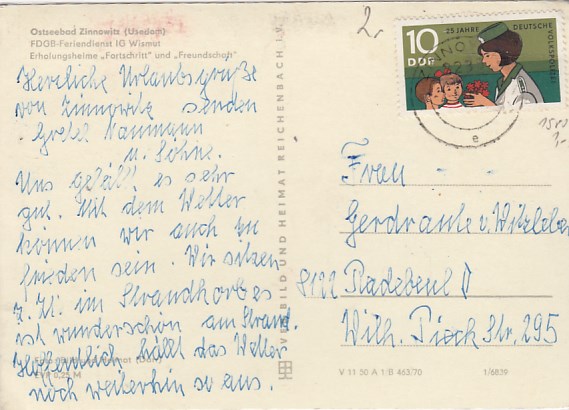 Ostseebad Zinnowitz (Usedom)
FDGB-Feriendienst IG Wismut
Erholungsheime „Fortschritt" und „Freundschaft"
Herzliche Urlaubsgrüße
von Zinnowitz senden
Gretel Naumann
u. Söhne.
Uns gefällt es sehr
gut. Mit dem Wetter
können wir auch zu
frieden sein. Wir sitzen
z. Zt. im Strandkorb es
ist wunderschön am Strand.
Hoffentlich hällt das Wetter
noch weiterhin so aus.
EVP 0,25 M
BILD UND HEIMAT REICHENBACH I. V.
2.
10
DDR
25 JAHRE DEUTSCHE
VOLKSPOLIZEI
ZINNO
e
1500
Frau
Gerdraute v. Witzleben
8122 Radebeul
Wilh. Pieck Str. 295
V 11 50 A 1/B 463/70 1/6839